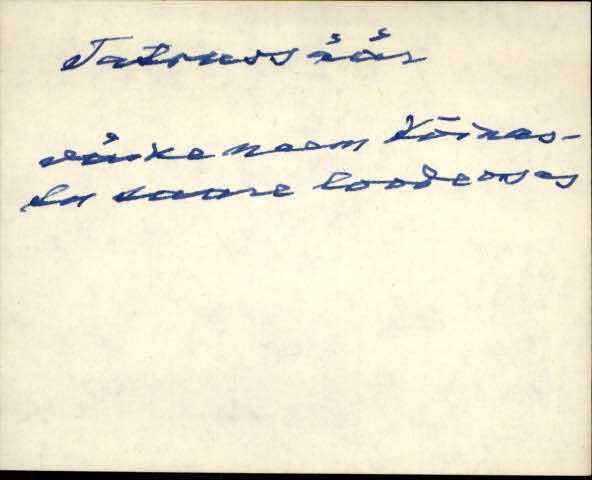 Tatrussäär
väike neem Kõinas-
tu saare loodeosas